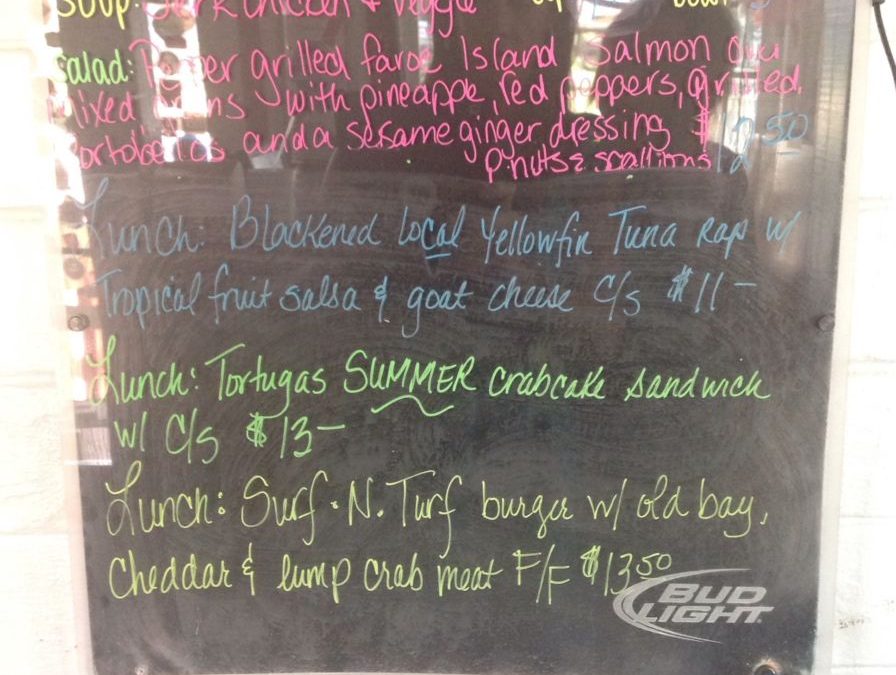 Soup: Jerk chicken & veggie
Salad: Pepper grilled faroe Island Salmon over
mixed greens with pineapple, red peppers, grilled
portobellos and a sesame ginger dressing $12.50
Pnuts & scallions
Lunch: Blackened local Yellowfin Tuna Rap w/
Tropical fruit salsa & goat cheese C/S $11-
Lunch: Tortugas SUMMER crabcake sandwich
w/ C/S $13-
Lunch: Surf.N.Turf burger w/ old bay,
Cheddar & lump crab meat F/F $13.50
BUD
LIGHT